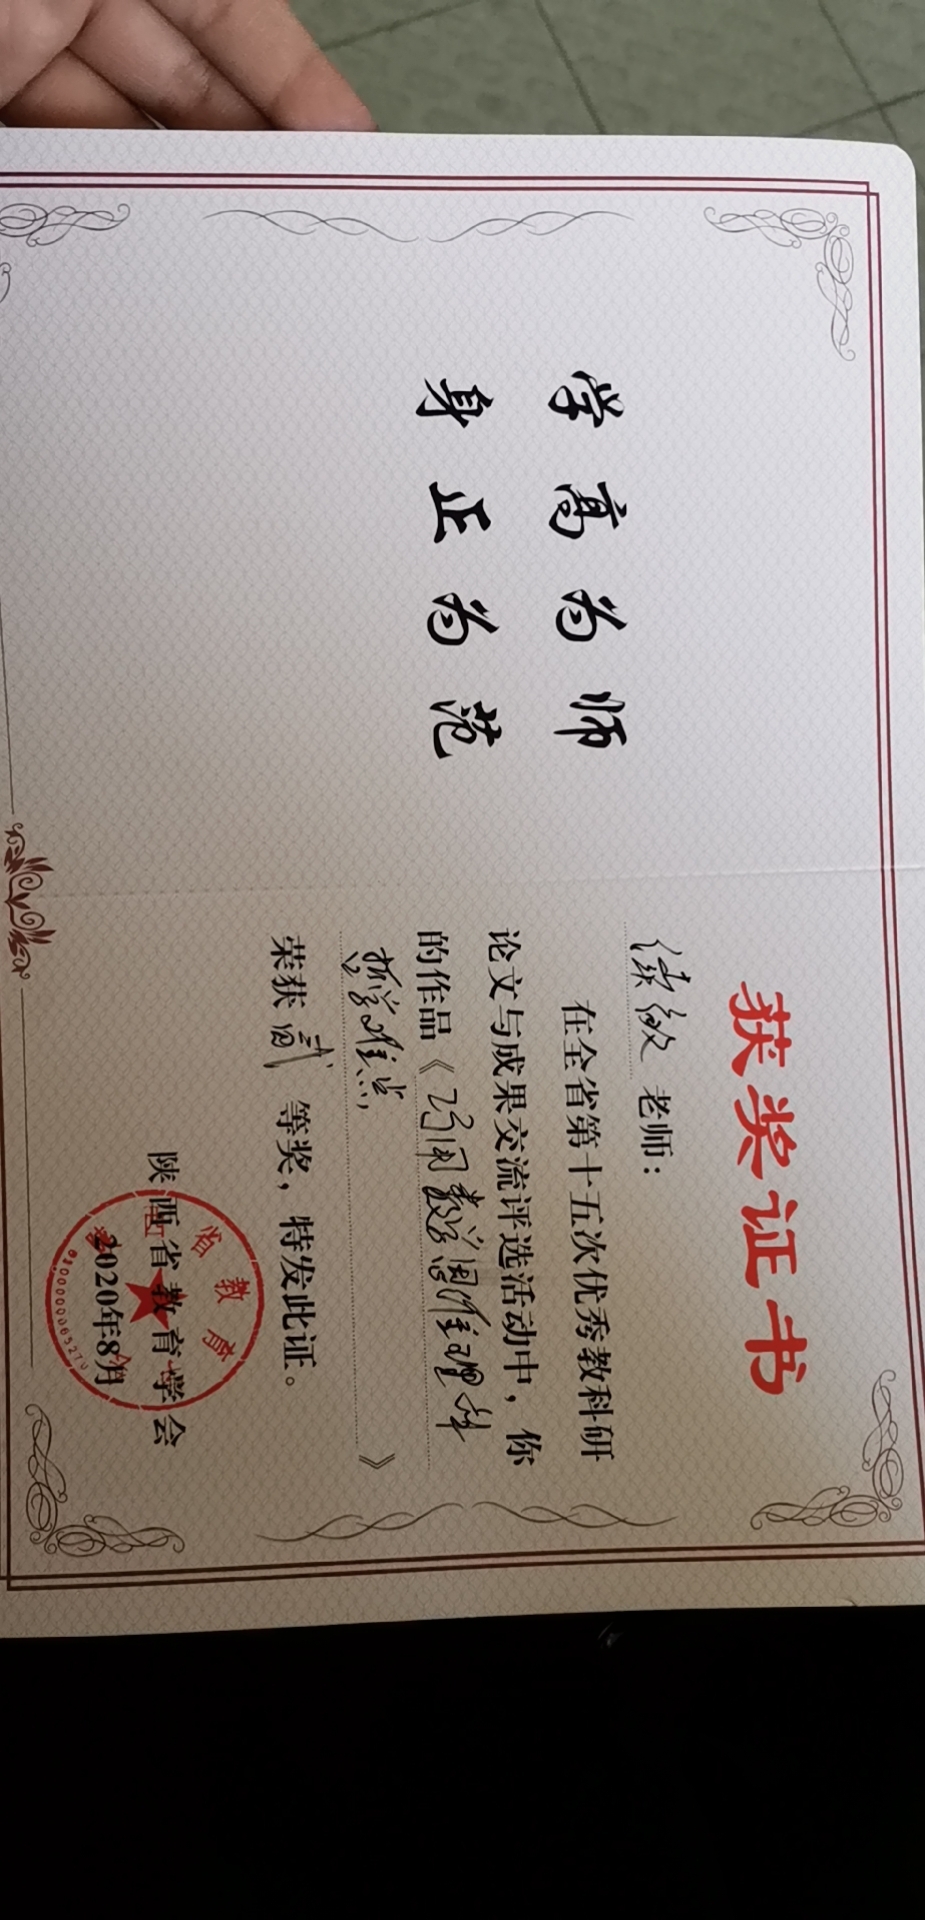 学高为师
身正为范
获奖证书
老师：
在全省第十五次优秀教科研
论文与成果交流评选活动中，你
的作品《巧用数学思维理解
哲学难点
》
荣获贰等奖，特发此证。
陕西省教育学会
2020年8月